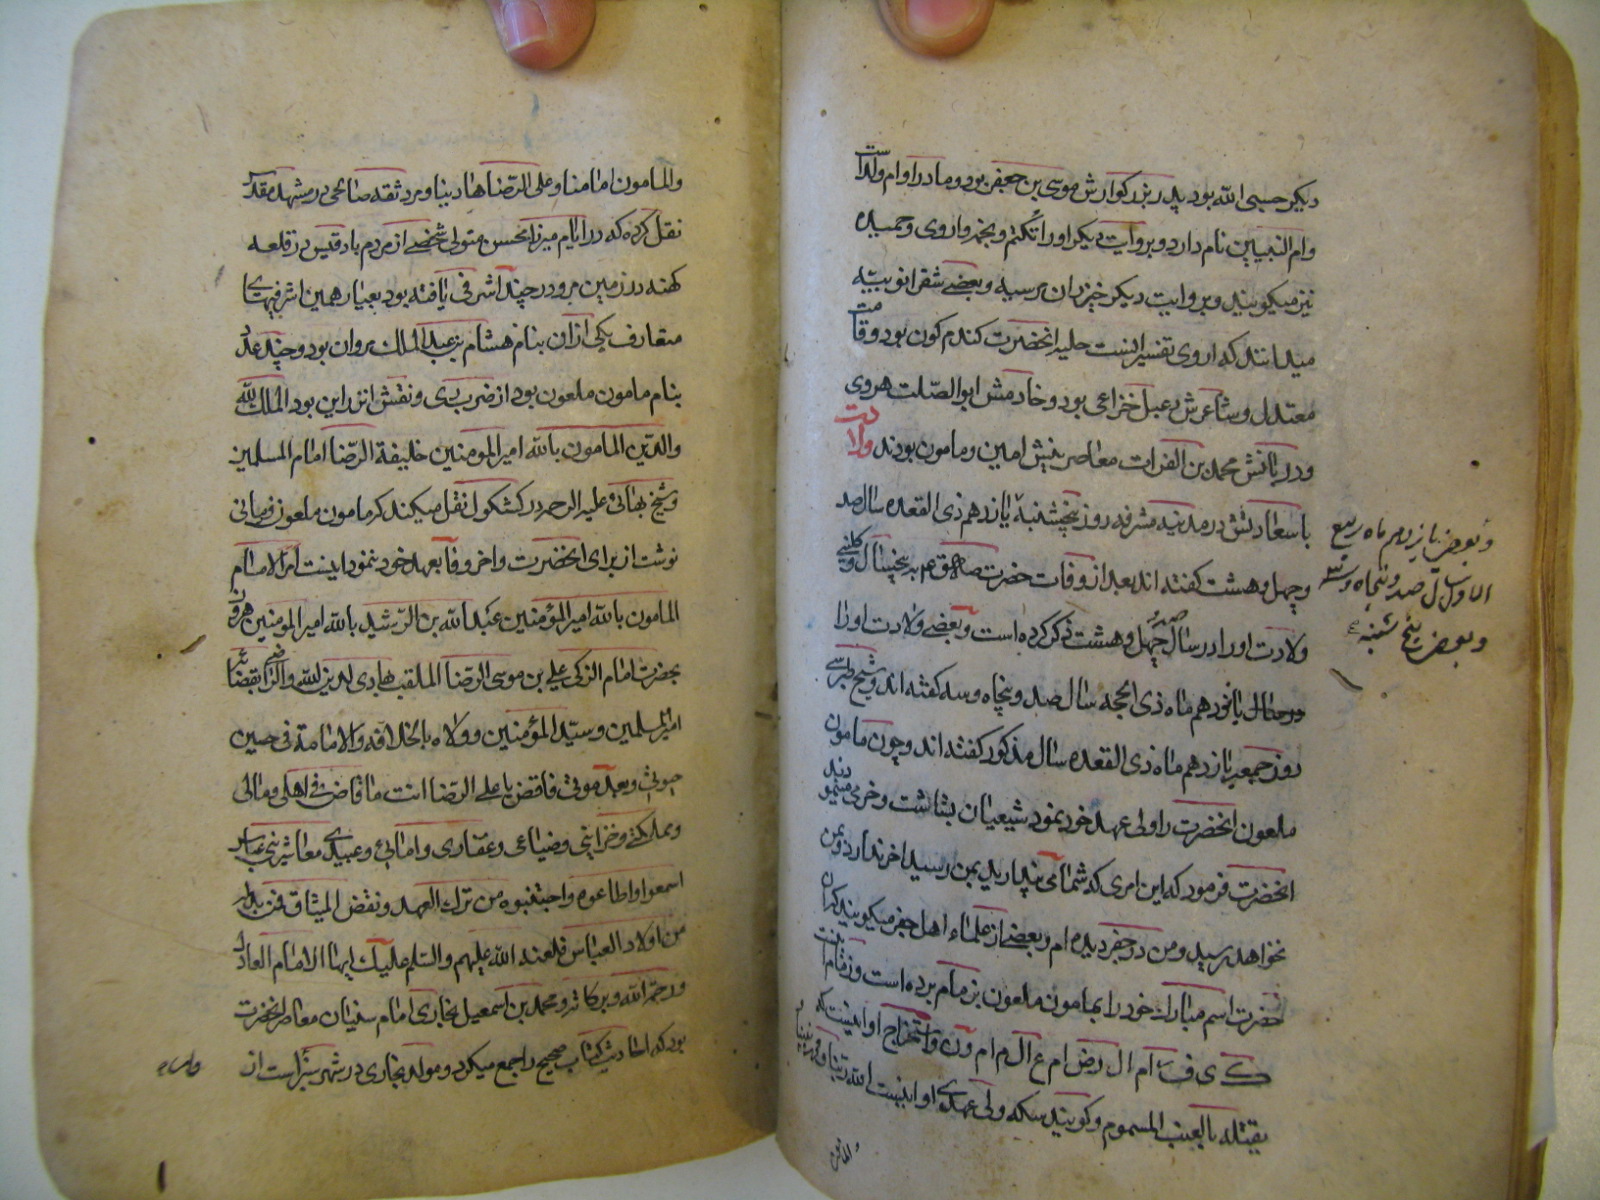 دیکر حسبی الله بود پدر بزرکوارش موسی بن جعفر بود و مادر او ام ولد است
وام النبیین نام دارد و بروایت دیکر او را تکتم و نجمه و اروی و
نیز میکویند و بروایت دیکر خیزران مرسیه و بعضی شقرا نوبیه
میدانند که اروی تفسیر اینست حلیه انحضرت کندم کون بود و قامت
معتدل و شاعرش دعبل خزاعی بود و خادمش ابوالصلت هروی
و دربانش محمد بن الفرات معاصرینش امین و مامون بودند ولادت
باسعادتش در مدینه مشرفه روز پنجشنبه یازدهم ذی القعده سال صد
وچهل و هشت کفته اند بعد از وفات حضرت صادق ع به پنج سال و کلینی
ولادت او را در سال صد چهل و هشت ذکر کرده است و بعضی ولادت او را
یازدهم ماه ذی الحجه سال صد و پنجاه و سه کفته اند و شیخ طبرسی
روز جمعه یازدهم ماه ذی القعده سال مذکور کفته اند و چون مامون
ملعون انحضرت را ولی عهد خود نمود شیعیان بشاشت و خرمی مینمودند
انحضرت فرمود که این امری که شما می پندارید بمن رسید اخر ندارد و بمن
نخواهد رسید و من در جفر دیده ام و بعضی از علماء اهل جفر میکویند که ان
حضرت اسم مبارک خود را بمامون ملعون بن مام برده است
ام ال رض ام ع ال م ام ون و استخراج او اینست که
یقتله بالعنب المسموم و کویند سکه ولی عهدی او اینست الله ربنا و محمد نبینا
والمامون
و بعضی یازدهم ماه ربیع
الاول سال صد و پنجاه و سه
و بعضی پنج شنبه
والمامون امامنا و علی الرضا هادینا و مرد ثقه صالحی در مشهد مقدس
نقل کرده که در ایام میرزا محسن متولی شخصی از مردم بادقیس در قلعه
کهنه در زمین مرو در چند اشرفی یافته بود بعیار همین اشرفیهای
متعارف یکی از ان بنام هشام بن عبد الملک مروان بود و چند عدد
بنام مامون ملعون بود از ضرب ری و نقش انزر این بود الملک لله
والدین المامون بالله امیر المومنین خلیفة الرضا امام المسلمین
و شیخ بهائی علیه الرحمه در کشکول نقل میکند که مامون ملعون فرمانی
نوشت از برای انحضرت و اخر وفا بعهد خود ننمود اینست امر الامام
المامون بالله امیر المؤمنین عبد الله بن الرشید بالله امیر المومنین هرون
بحضرت امام الزکی علی بن موسی الرضا الملقب بهادی لدین لله والراضی بقضائه
امیر المسلمین و سید المؤمنین و ولاه بالخلافه والامامة فی حین
حیوتی و بعد موتی فاقض یا علی الرضا انت ما قاض فی اهلی ومالی
ومملکتی وخزاینی وضیاعی وعقاری وامائی وعبیدی معاشر بنی عباس
اسمعوا واطاعوه واجتنبوه من ترک العهد ونقض المیثاق فمن بدل
من اولاد العباس فلعنه الله علیهم والسلم علیک ایها الامام العادل
ورحمة الله وبرکاته و محمد بن اسمعیل بخاری امام سنیان معاصر انحضرت
بود که احادیث کتاب صحیح را جمع میکرد و مولد بخاری در شهر است از